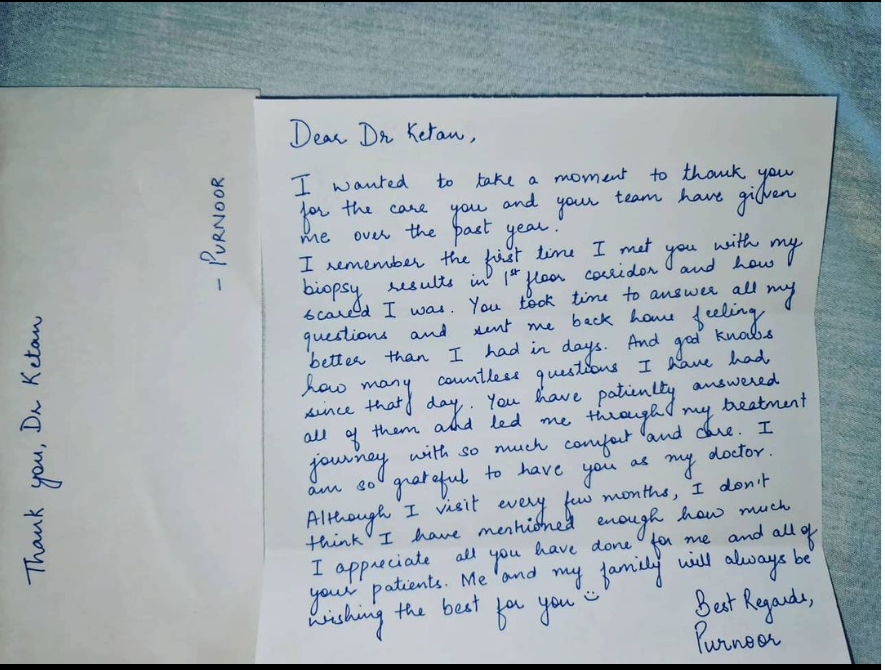 Thank you, Dr Ketan
- PURNOOR
Dear Dr Ketan,
I wanted to take a moment to thank you
for the care you and your team have given
me over the past year.
I remember the first time I met you with my
biopsy results in 1st floor corridor and how
scared I was. You took time to answer all my
questions and sent me back home feeling
better than I had in days. And god knows
how many countless questions I have had
since that day. You have patiently answered
all of them and led me through my treatment
journey with so much comfort and care. I
am so grateful to have you as my doctor.
Although I visit every few months, I don't
think I have mentioned enough how much
I appreciate all you have done for me and all of
your patients. Me and my family will always be
wishing the best for you :)
Best Regards,
Purnoor